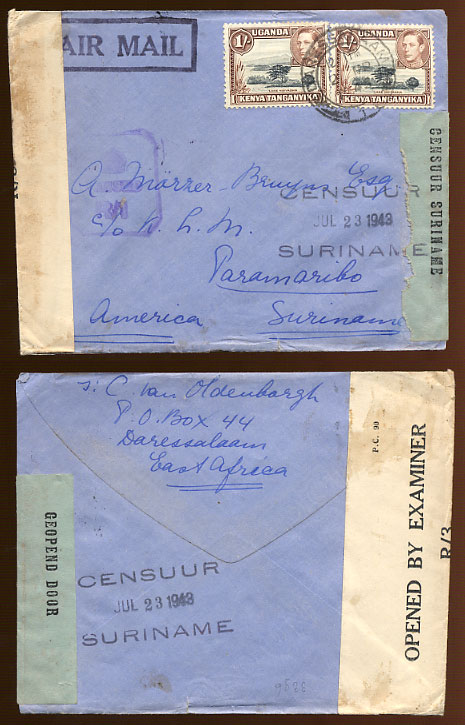 AIR MAIL
UGANDA
1/-
KENYA TANGANYIKA
UGANDA
1/-
KENYA TANGANYIKA
CENSUUR SURINAME
A. Mörzer-Bruyns Esq
CENSUUR
JUL 23 1943
SURINAME
c/o K. L. M.
Paramaribo
America
Suriname
s. C. van Oldenborgh
P.O. Box 44
Daressalaam
East Africa
P.C. 90
OPENED BY EXAMINER
R/3
GEOPEND DOOR
CENSUUR
JUL 23 1943
SURINAME